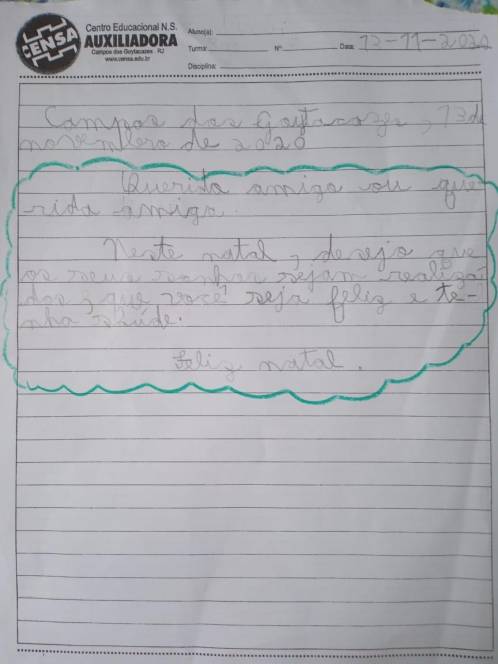 CENSA
Centro Educacional N.S.
AUXILIADORA
Campos dos Goytacazes RJ
www.censa.edu.br
Aluno(a):
Turma: Nº Data: 13-11-2020
Disciplina:
Campos dos Goytacazes, 13 de
novembro de 2020
Querida amiga ou que
rida amiga.
Neste natal, desejo que
os seus sonhos sejam realiza
dos, que você seja feliz e te-
nha saúde.
Feliz natal.